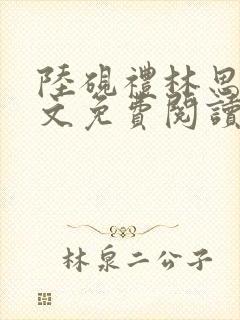 陸硯禮林思
文免費閱讀
林泉二公子